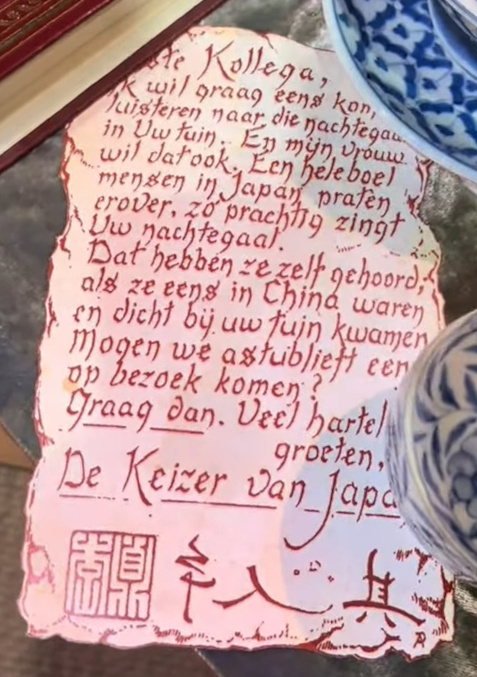 ste Kollega,
k wil graag eens kom,
luisteren naar die nachtegaa
in Uw tuin. En mijn vrouw
wil dat ook. Een heleboel
mensen in Japan praten
erover, zo prachtig zingt
Uw nachtegaal.
Dat hebben ze zelf gehoord,
als ze eens in China waren
en dicht bij uw tuin kwamen
Mogen we astublieft een
op bezoek komen?
Graag dan. Veel hartel
groeten,
De Keizer van Japa